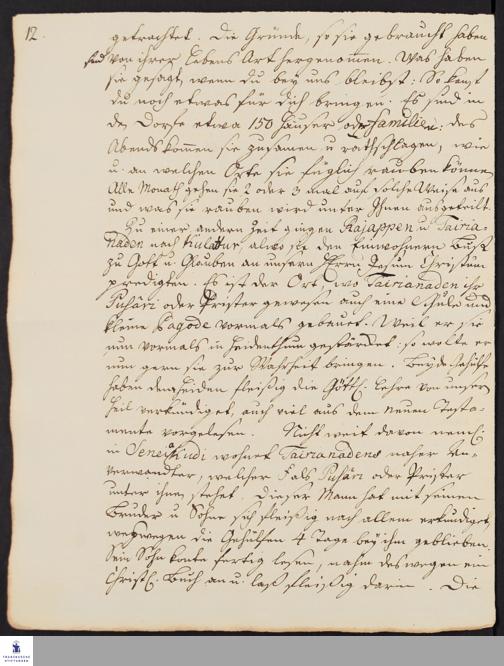 12.
getrachtet. Die Gründe, so sie gebraucht haben
sind von ihrer Lebens Art hergenommen. Was haben
sie gesagt, wenn du bey uns bleibst: So kanst
du noch etwas für dich bringen: Es sind in
dem Dorfe etwa 150 Häuser oder Familien: des
Abends kommen sie zusamen u. rathschlagen, wie
u. an welchen Orte sie füglich rauben können
Alle Monath gehen sie 2 oder 3 mal auf solche Weise aus
und was sie rauben wird unter Ihnen ausgetheilt.
Zu einer andern Zeit giengen Rajappen u. Tairia-
naden nach Kulattur, alwo sie den Einwohnern Buße
zu Gott u. Glauben an unsern Herrn Jesum Christum
predigten. Es ist der Ort, wo Tairianaden ihr
Puhári oder Prister gewesen auch eine Schule und
kleine Pagode vormals gebauet. Weil er sie
nun vormals in Heidenthum gestärcket, so wolte er
nun gern sie zur Wahrheit bringen. Beyde Gehülfen
haben den Heiden fleißig die Göttl. Lehre von unserm
Heil verkündiget, auch viel aus dem Neuen Testa-
mente vorgelesen. Nicht weit davon neml.
in wohnet Tairianadens naher An-
verwandter, welcher als Puhári oder Prister
unter ihnen stehet. Dieser Mann hat mit seinen
Bruder u. Sohne sich fleißig nach allem erkundiget,
weßwegen die Gehülfen 4 Tage bey ihm geblieben.
Sein Sohn konte fertig lesen, nahm deswegen ein
Christl. Buch an u. laß fleißig darin. Die
FRANCKESCHE
STIFTUNGEN